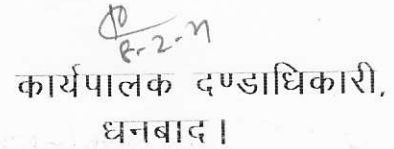 8-2-21
कार्यपालक दण्डाधिकारी,
धनबाद।